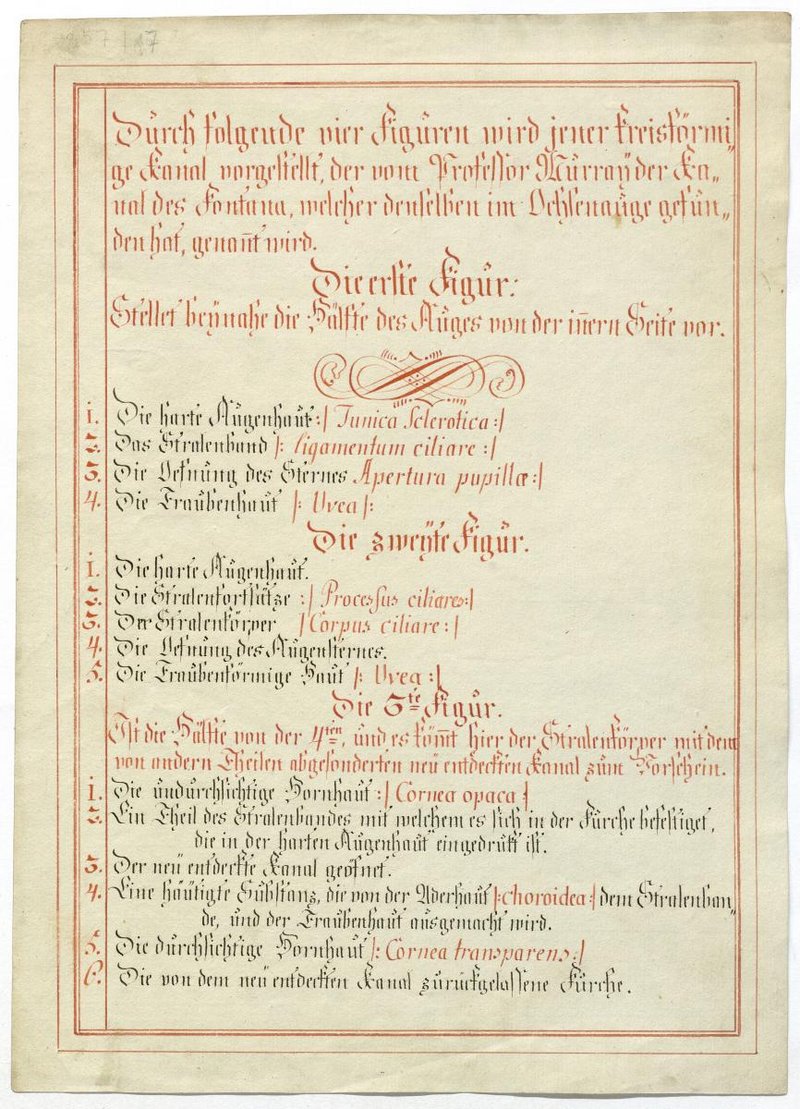 57/17
Durch folgende vier Figuren wird jener kreisförmi„
ge Kanal vorgestellt, der vom Professor Murraÿ der Ka„
nal des Fontana, welcher denselben im Ochsenauge gefun„
den hat, genan̄t wird.
Die erste Figur:
Stellet beÿnahe die Hälfte des Auges von der in̄ern Seite vor.
1. Die harte Augenhaut :/ Tunica Sclerotica :/
2. Das Stralenband /: ligamentum ciliare :/
3. Die Oefnung des Sternes Apertura pupillæ :/
4. Die Traubenhaut /: Uvea /:
Die zweÿte Figur.
1. Die harte Augenhaut.
2. Die Stralenfortsätze :/ Processus ciliares :/
3. Der Stralenkörper /Corpus ciliare :/
4. Die Oefnung des Augensternes.
5. Die Traubenförmige Haut /: Uvea :/
Die 3te Figur.
Ist die Hälfte von der 4ten, und es köm̄t hier der Stralenkörper mit dem
von andern Theilen abgesonderten neu entdeckten Kanal zum Vorschein.
1. Die undurchsichtige Hornhaut :/ Cornea opaca /
2. Ein Theil des Stralenbandes mit welchem es sich in der Furche befestiget,
die in der harten Augenhaut eingedrukt ist.
3. Der neu entdeckte Kanal geöfnet.
4. Eine häutigte Substanz, die von der Aderhaut /: choroidea :/ dem Stralenban„
de, und der Traubenhaut ausgemacht wird.
5. Die durchsichtige Hornhaut /: Cornea transparens :/
6. Die von dem neu entdeckten Kanal zurückgelassene Furche.